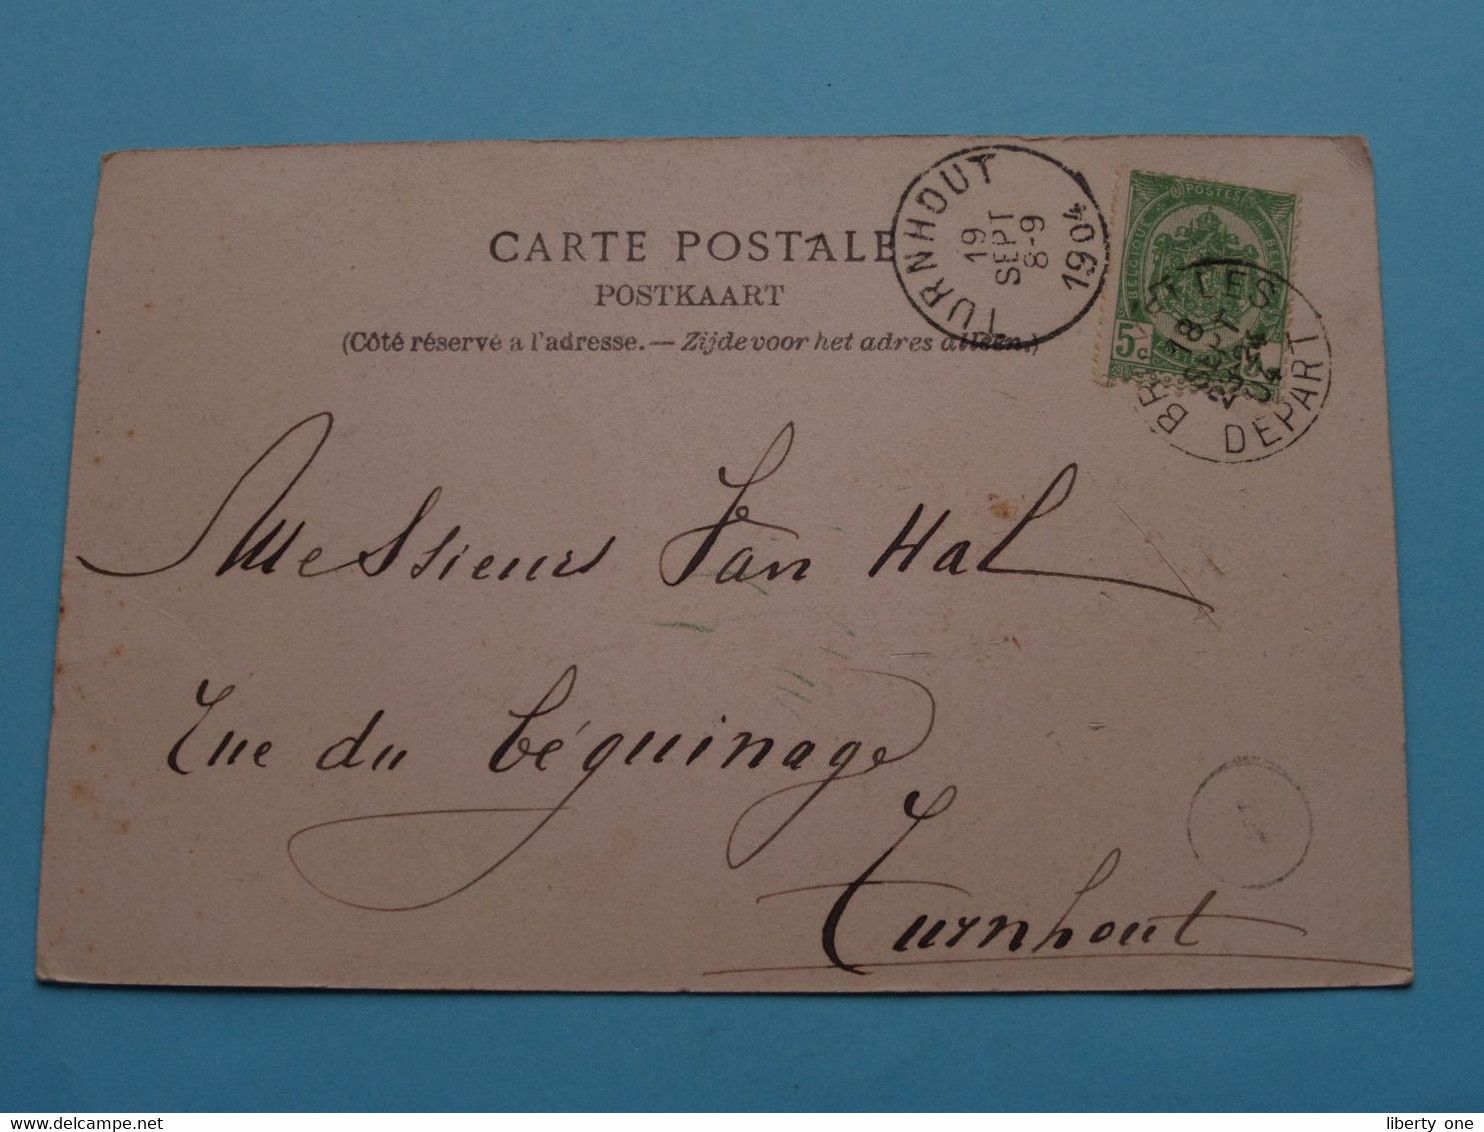 CARTE POSTALE
POSTKAART
(Côté réservé a l'adresse. — Zijde voor het adres alleen.)
TURNHOUT
19
SEPT
8-9
1904
POSTES
BELGIQUE
5 c
DEPART
Messieurs Van Hal
Rue du béguinage
Turnhout
liberty one